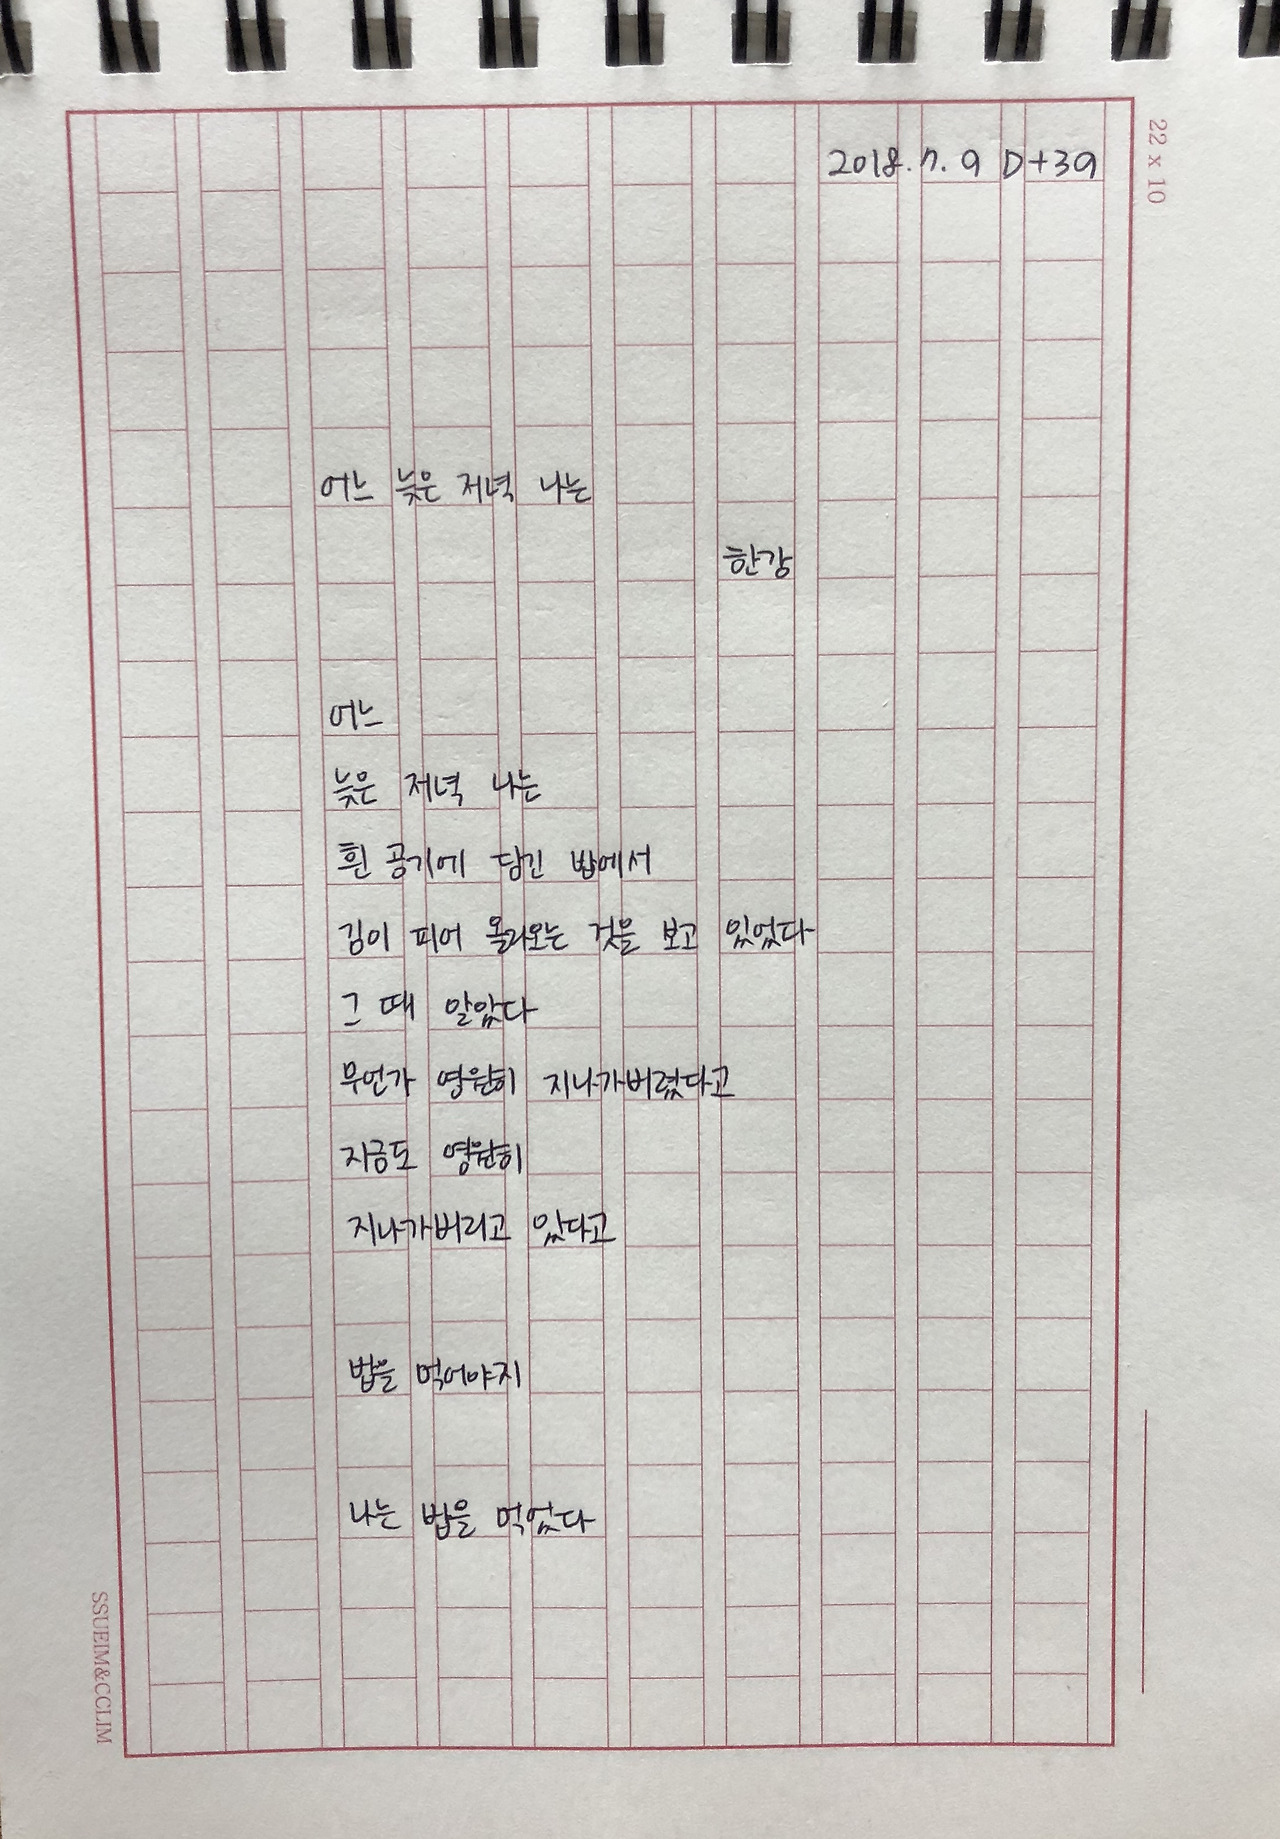 2018. 7. 9 D+39
22 x 10
어느 늦은 저녁 나는
한강
어느
늦은 저녁 나는
흰 공기에 담긴 밥에서
김이 피어 올라오는 것을 보고 있었다
그 때 알았다
무언가 영원히 지나가버렸다고
지금도 영원히
지나가버리고 있다고
밥을 먹어야지
나는 밥을 먹었다
SSUEIM&CCLIM